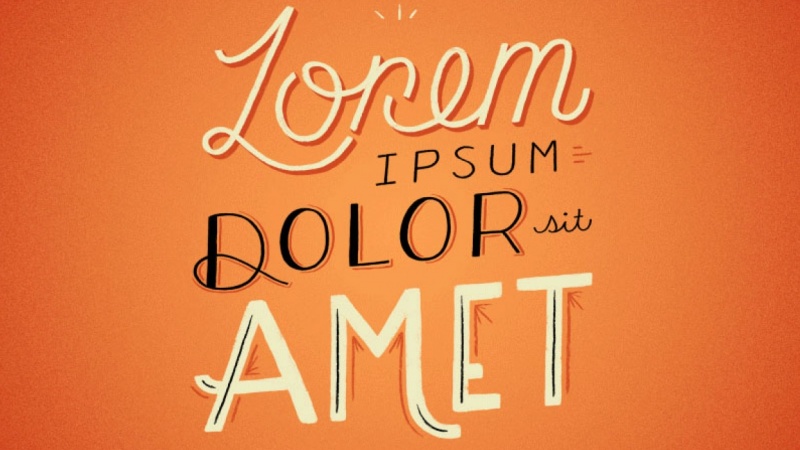 Lorem
IPSUM
DOLOR sit
AMET